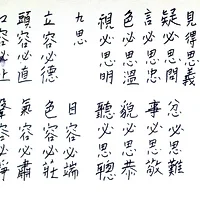 口容必止
聲容必靜
頭容必直
氣容必肅
立容必德
色容必莊
目容必端
九思
視必思明
聽必思聰
色必思溫
貌必思恭
言必思忠
事必思敬
疑必思問
忿必思難
見得思義